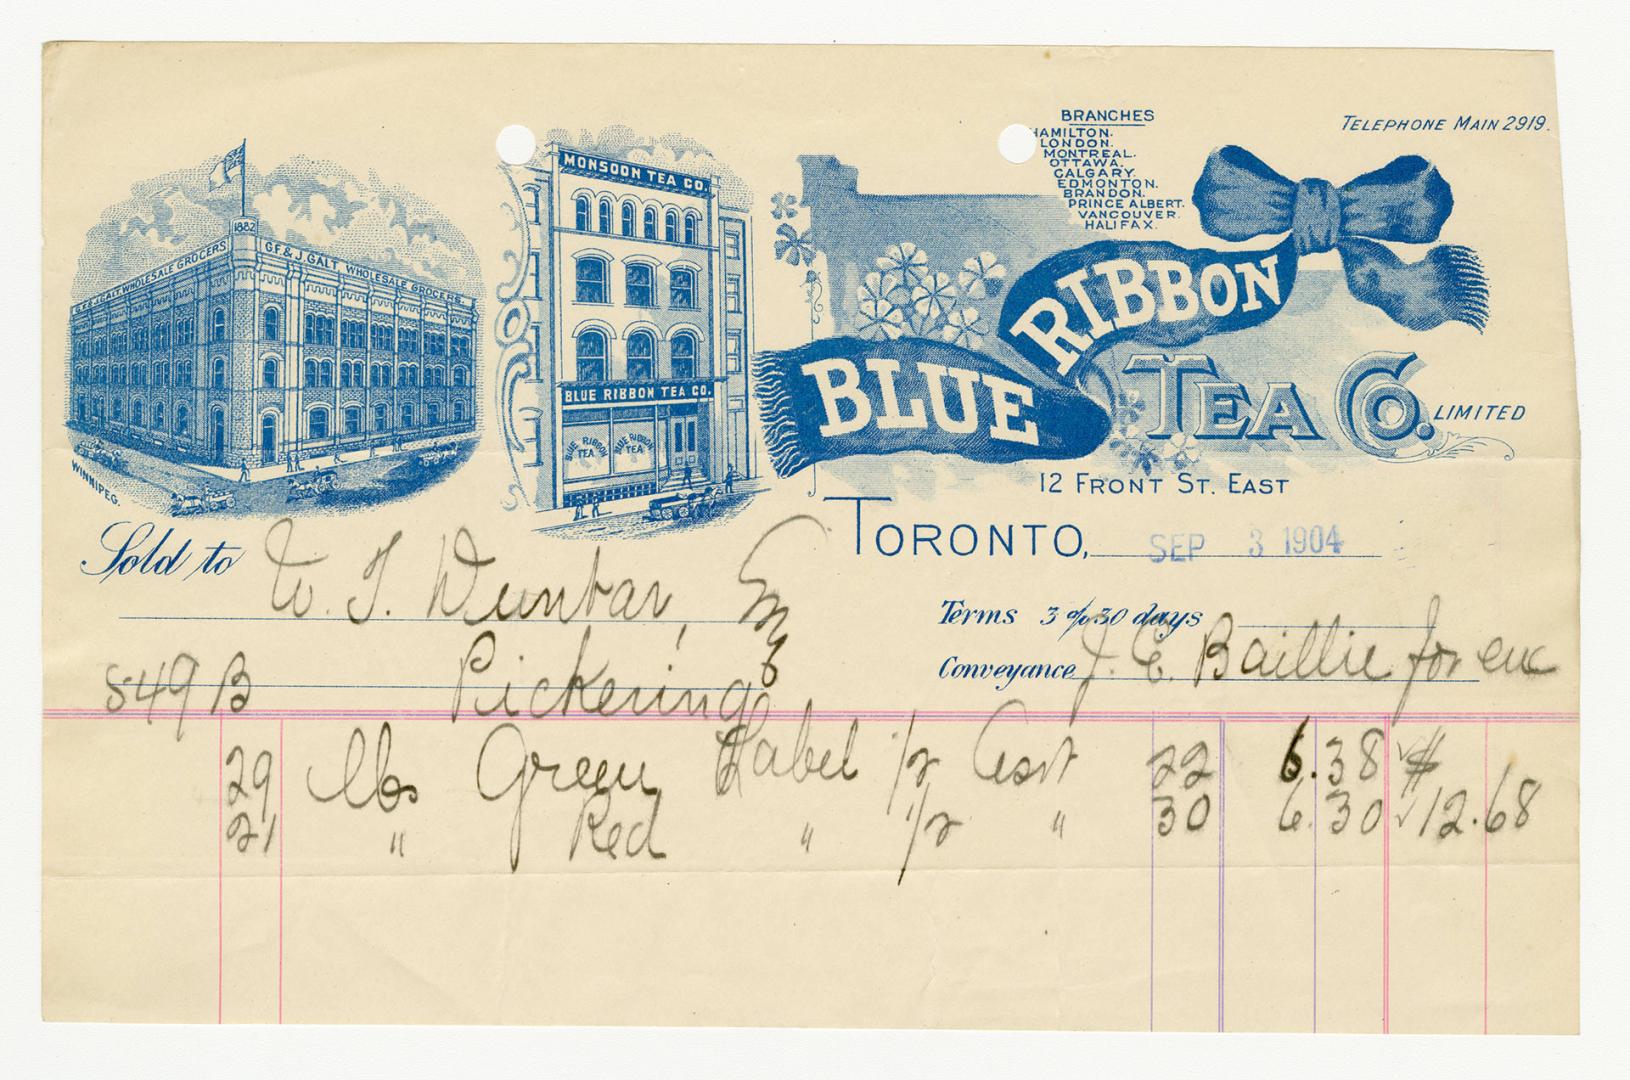 BRANCHES
HAMILTON.
LONDON.
MONTREAL.
OTTAWA.
CALGARY.
EDMONTON.
BRANDON.
PRINCE ALBERT.
VANCOUVER.
HALIFAX.
TELEPHONE MAIN 2919.
1882
G.F. & J. GALT, WHOLESALE GROCERS
G.F. & J. GALT, WHOLESALE GROCERS.
WINNIPEG.
MONSOON TEA CO.
BLUE RIBBON TEA CO.
BLUE RIBBON TEA
BLUE RIBBON TEA
BLUE RIBBON TEA CO. LIMITED
12 FRONT ST. EAST
TORONTO, SEP 3 1904
Sold to W. T. Dunbar, Esq
Pickering
Terms 3 % 30 days
Conveyance J. E. Baillie for enc
549 B
29 lbs Green Label 1/2 Asst 22 6.38 $
21 " Red " 1/2 " 30 6.30 12.68